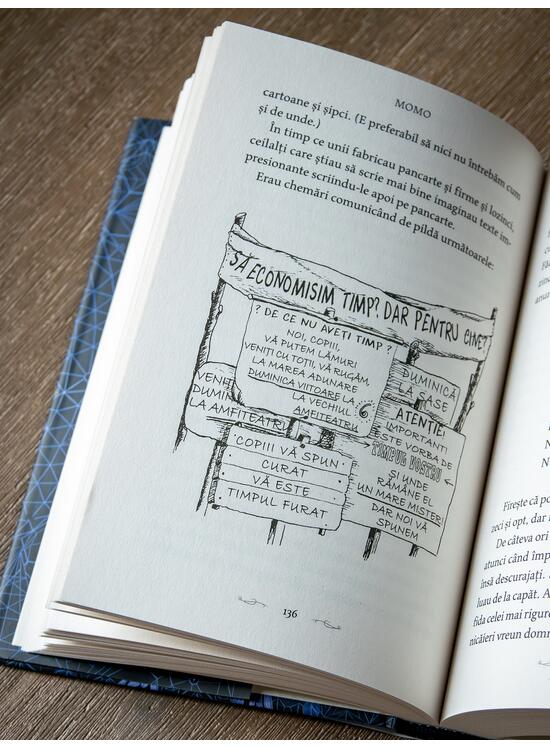 MOMO
cartoane și șipci. (E preferabil să nici nu întrebăm cum
și de unde.)
În timp ce unii fabricau pancarte și firme și lozinci,
ceilalți care știau să scrie mai bine imaginau texte im-
presionante scriindu-le apoi pe pancarte.
Erau chemări comunicând de pildă următoarele:
SĂ ECONOMISIM TIMP? DAR PENTRU CINE?
? DE CE NU AVEȚI TIMP ?
NOI, COPIII,
VĂ PUTEM LĂMURI
VENIȚI CU TOȚII, VĂ RUGĂM,
LA MAREA ADUNARE
DUMINICA VIITOARE LA
LA VECHIUL 6
AMFITEATRU
DUMINICĂ
LA ȘASE
VENI
DUMIN
LA AMFITEATRU
ATENȚIE!
IMPORTANT!
ESTE VORBA DE
TIMPUL VOSTRU
ȘI UNDE
RĂMÂNE EL
UN MARE MISTER!
DAR NOI VĂ
SPUNEM
COPIII VĂ SPUN
CURAT
VĂ ESTE
TIMPUL FURAT
136
Firește că po
zeci și opt, dar
De câteva ori
atunci când împ
însă descurajați.
luau de la capăt. A
fida celei mai riguro
nicăieri vreun domn